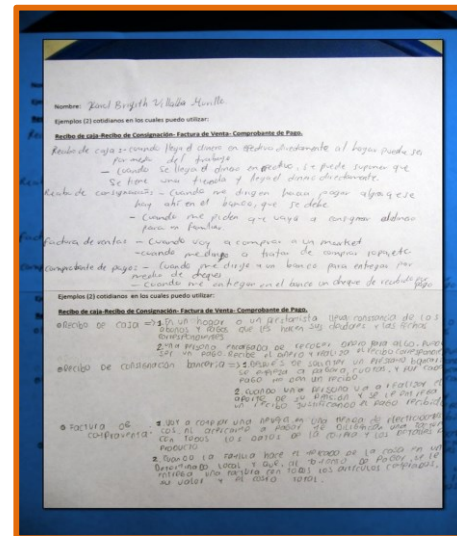 Nombre: Karol Brigith Villalba Murillo
Ejemplos (2) cotidianos en los cuales puedo utilizar:
Recibo de caja-Recibo de Consignación- Factura de Venta- Comprobante de Pago.
Recibo de caja :- cuando llega el dinero en efectivo directamente al hogar puede ser
por medio del trabajo
- cuando se llega el dinero en efectivo, se puede suponer que
se tiene una tienda y llega el dinero directamente.
- cuando me dirigen hacia pagar algo que se
hay ahí en el banco, que se debe
- cuando me piden que vaya a consignar al dinero
para mi familia.
factura de ventas - cuando voy a comprar a un market
- cuando me dirijo a tratar de comprar ropa, etc
comprobante de pagos: - cuando me dirijo a un banco para entregar por
medio de cheques
- cuando me entregan en el banco un cheque de recibido por pago
Ejemplos (2) cotidianos en los cuales puedo utilizar:
Recibo de caja-Recibo de Consignación- Factura de Venta- Comprobante de Pago.
Recibo de casa => 1. En un hogar o un prestamista lleva constancia de los
abonos y pagos que les hacen sus deudores y las fechas
correspondientes
2. Una persona encargada de recoger dinero para algo. Puede
ser un pago. Recibe el dinero y realiza el recibo correspondiente
Recibo de consignación bancaria => 1. Después de solicitar un préstamo bancario
se empieza a pagar a cuotas, y por cada
pago me dan un recibo.
2. Cuando una persona va a realizar el
aporte de su pensión y se le
un recibo justificando el pago recibido
Factura de
1. Voy a comprar una nevera en una tienda de electrodomésti-
cos al acercarme a pagar me entregan una factura
con todos los datos de la misma y los detalles del
producto
2. Cuando la familia hace el mercado de la casa en un
determinado local y que, al terminar de pagar, se le
entrega una factura con todos los artículos comprados,
su valor y el costo total.